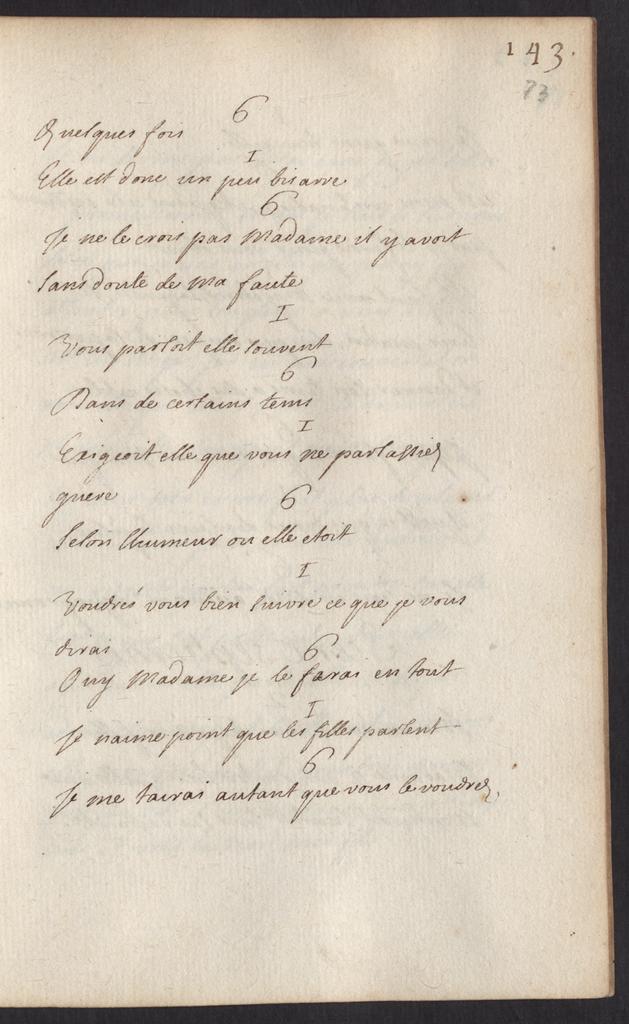 143.
73
6
Quelques fois
I
Elle est donc un peu bisarre
6
Je ne le crois pas Madame il y avoit
sans doute de ma faute
I
Vous parloit elle souvent
6
Dans de certains tems
I
Exigeoit elle que vous ne parlassiez
guere
6
Selon lhumeur ou elle etoit
I
Voudrés vous bien suivre ce que je vous
dirai
6
Ouy Madame je le farai en tout
I
Je naime point que les filles parlent
6
Je me tairai autant que vous le voudrez.